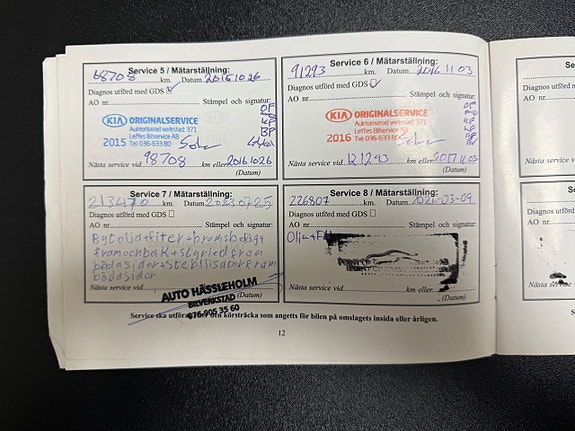 Service 5 / Mätarställning:
68708 km. Datum 20151026
Diagnos utförd med GDS
AO nr. Stämpel och signatur:
KIA ORIGINALSERVICE
Auktoriserad verkstad 371
Leffes Bilservice AB
2015 Tel: 036-633 80
Nästa service vid 98708 km eller 20161026
(Datum)
Service 6 / Mätarställning:
91293 km. Datum 2016.11.03
Diagnos utförd med GDS
AO nr. Stämpel och signatur:
KIA ORIGINALSERVICE
Auktoriserad verkstad 371
Leffes Bilservice AB
2016 Tel: 036-633 80
Nästa service vid 121293 km eller 2017.11.03
(Datum)
Service 7 / Mätarställning:
213470 km. Datum 2023.07.25
Diagnos utförd med GDS
Byt olja+filter+bromsbelägg
fram och bak+styrled fram
båda sidor+stabilisator fram
båda sidor
Nästa service vid
(Datum)
AUTO HÄSSLEHOLM
BILVERKSTAD
076-905 35 60
Service 8 / Mätarställning:
226807 km. Datum
Diagnos utförd med GDS
AO nr. Stämpel och signatur:
Olja+
Nästa service vid km eller
(Datum)
Service ska utföras den körsträcka som angetts för bilen på omslagets insida eller årligen.
12
Diagnos
AO nr.
Nästa serv
Diagnos
AO nr.
Nästa se